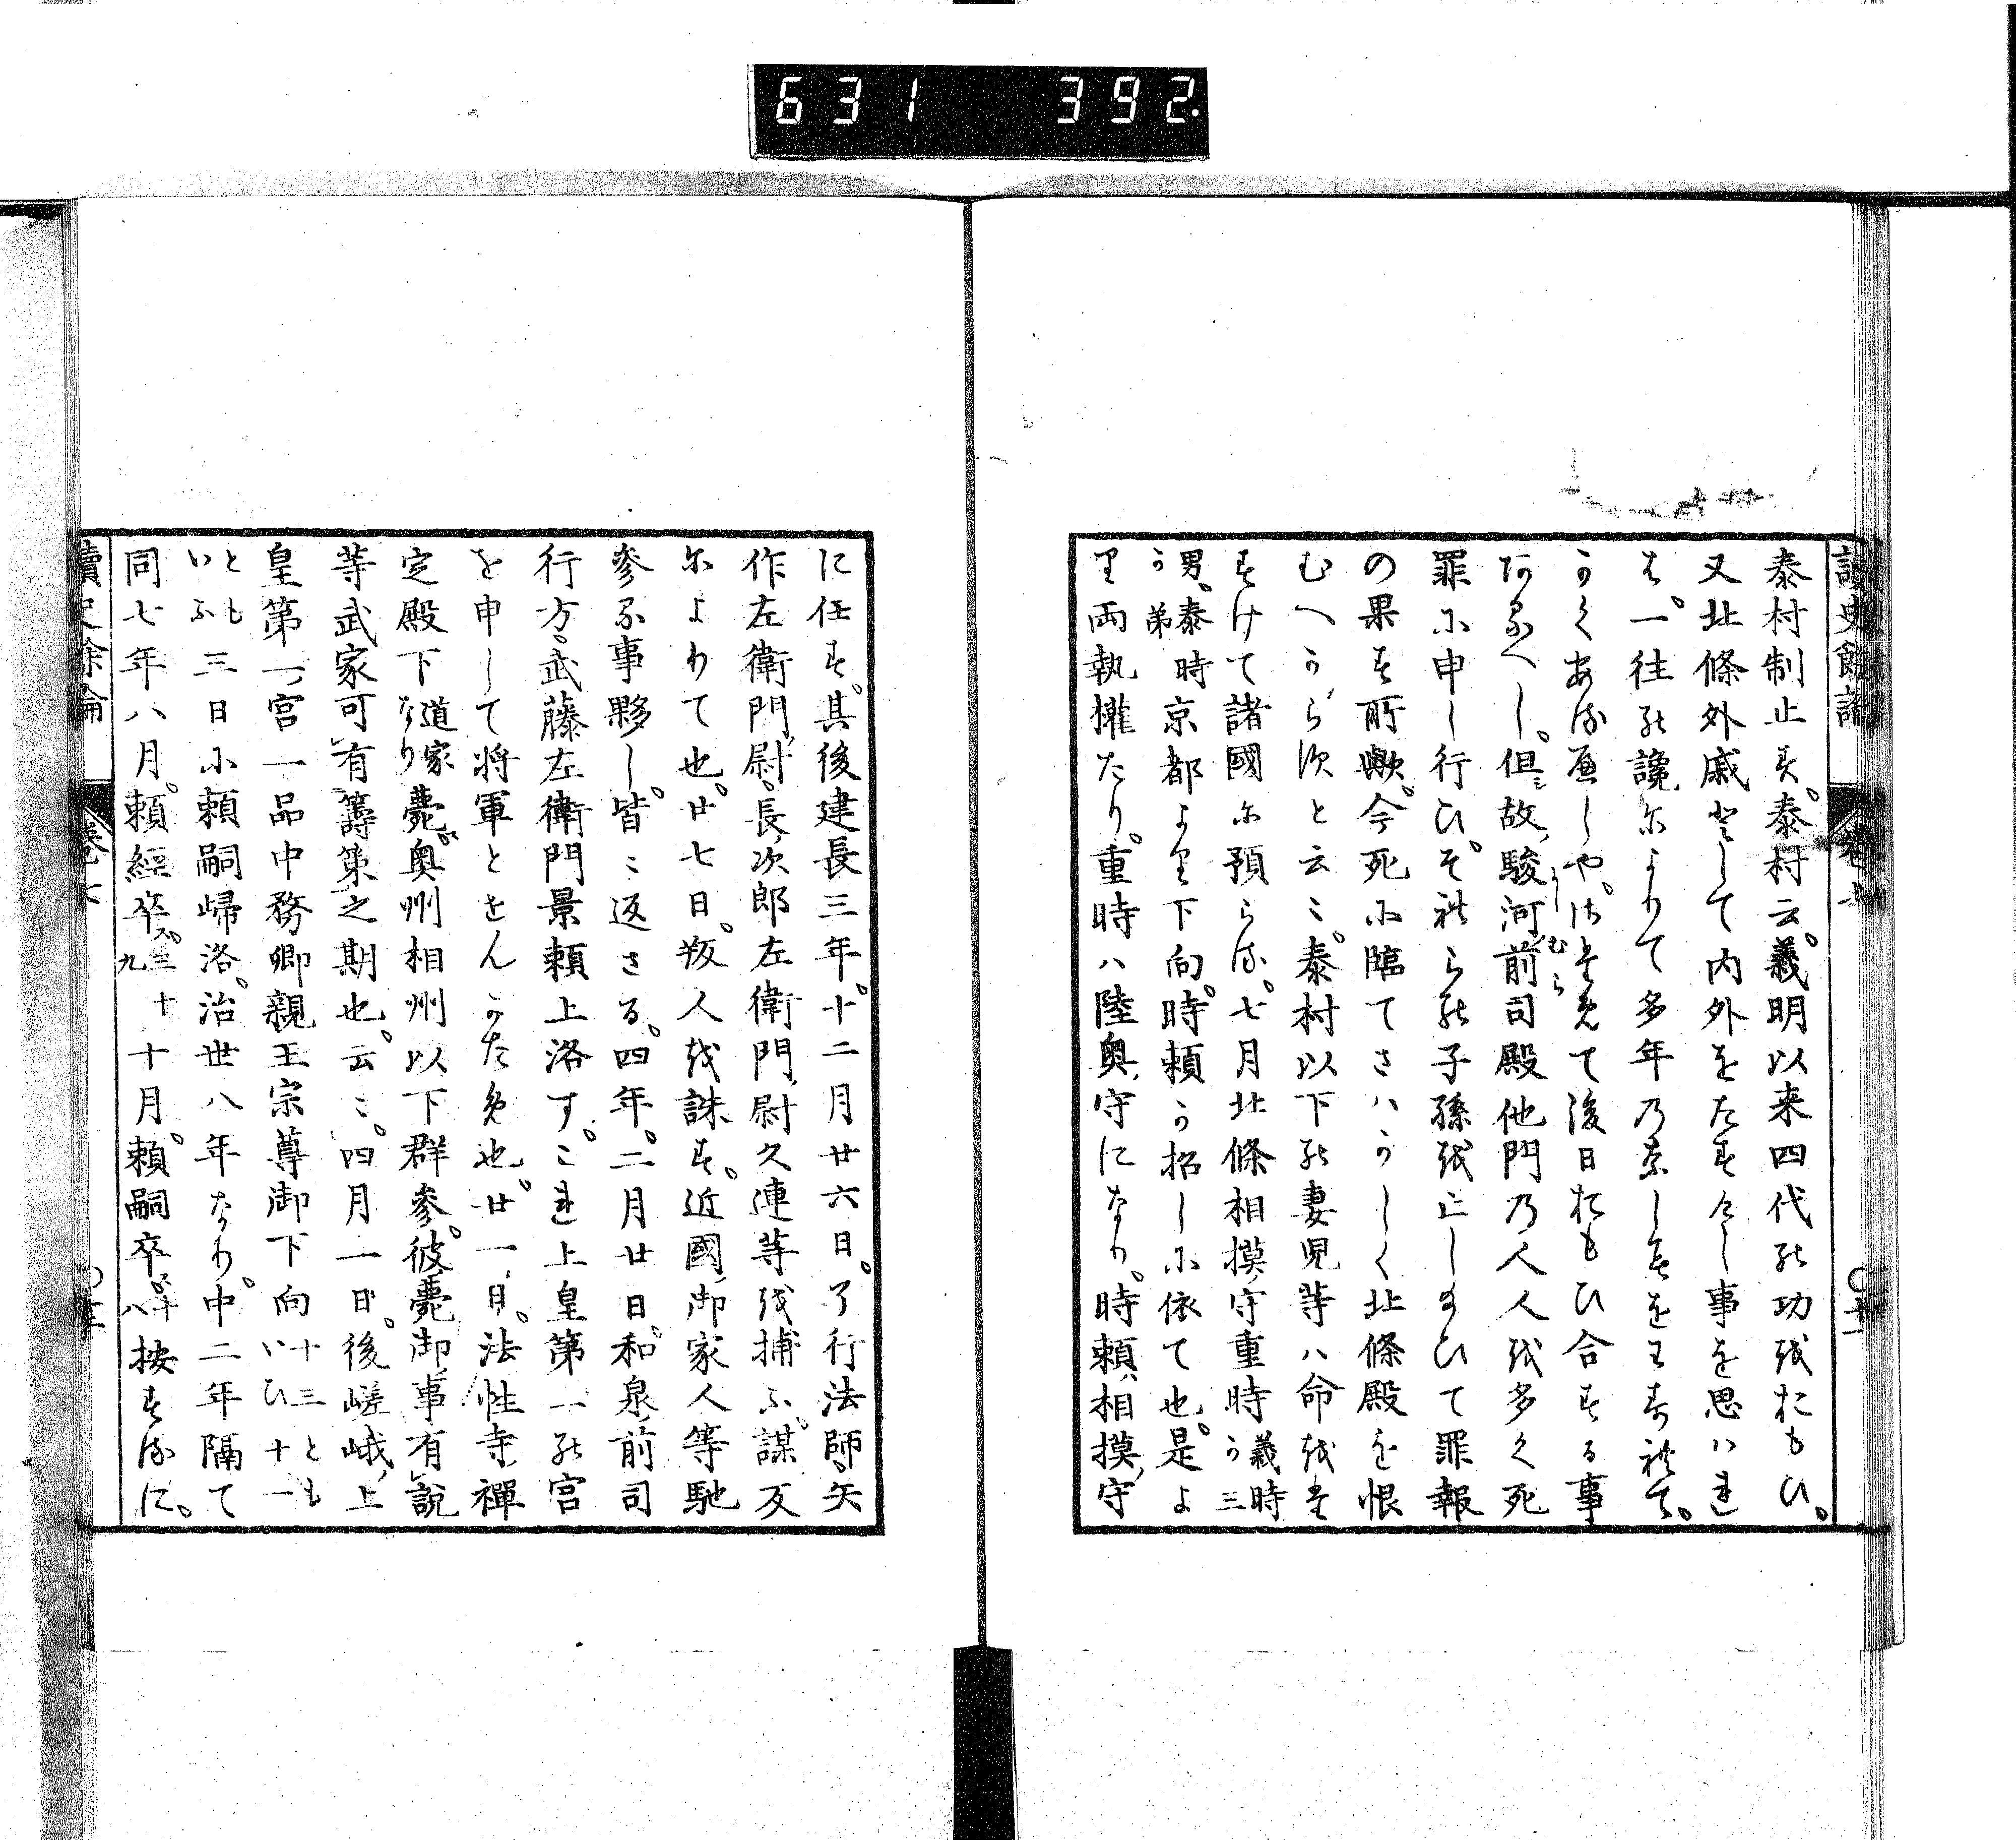 631 392
泰村制止す。泰村云。義明以来四代の功をおもひ。
又北條外戚として内外をたすけし事を思はれ
は。一往の讒によりて多年の
かくあるへしや。はためて後日おもひ合する事
あるへし。但〻故駿河前司殿他門の人人を多く死
罪に申し行ひ。それらの子孫を亡しまひて罪報
の果す所歟。今死に臨てさはかしく北條殿を恨
むへからすと云〻。泰村以下の妻児等ハ命をた
すけて諸國に預らる。七月北條相摸守重時義時か三
男。泰時か弟京都より下向。時頼か招しに依て也。是よ
り両執權たり。重時ハ陸奥守になり。時頼相摸守
に任す。其後建長三年。十二月廿六日。了行法師。矢
作左衛門尉。長次郎左衛門尉久連等を捕ふ。謀反
によりて也。廿七日。叛人を誅す。近國御家人等馳
參る事夥し。皆〻返さる。四年。二月廿日。和泉前司
行方。武藤左衛門景頼上洛す。これ上皇第一の宮
を申して将軍とせんかため也。廿一日。法性寺禪
定殿下道家なり薨。奥州相州以下群參。彼薨御事有説
等武家可有籌策之期也。云〻。四月一日。後嵯峨上
皇第一宮一品中務卿親王宗尊御下向十三ともいひ十一
ともいふ三日に頼嗣歸洛。治世八年なり。中二年隔て
同七年八月。頼經卒。三十九十月。頼嗣卒。十八按するに。
讀史餘論
卷七